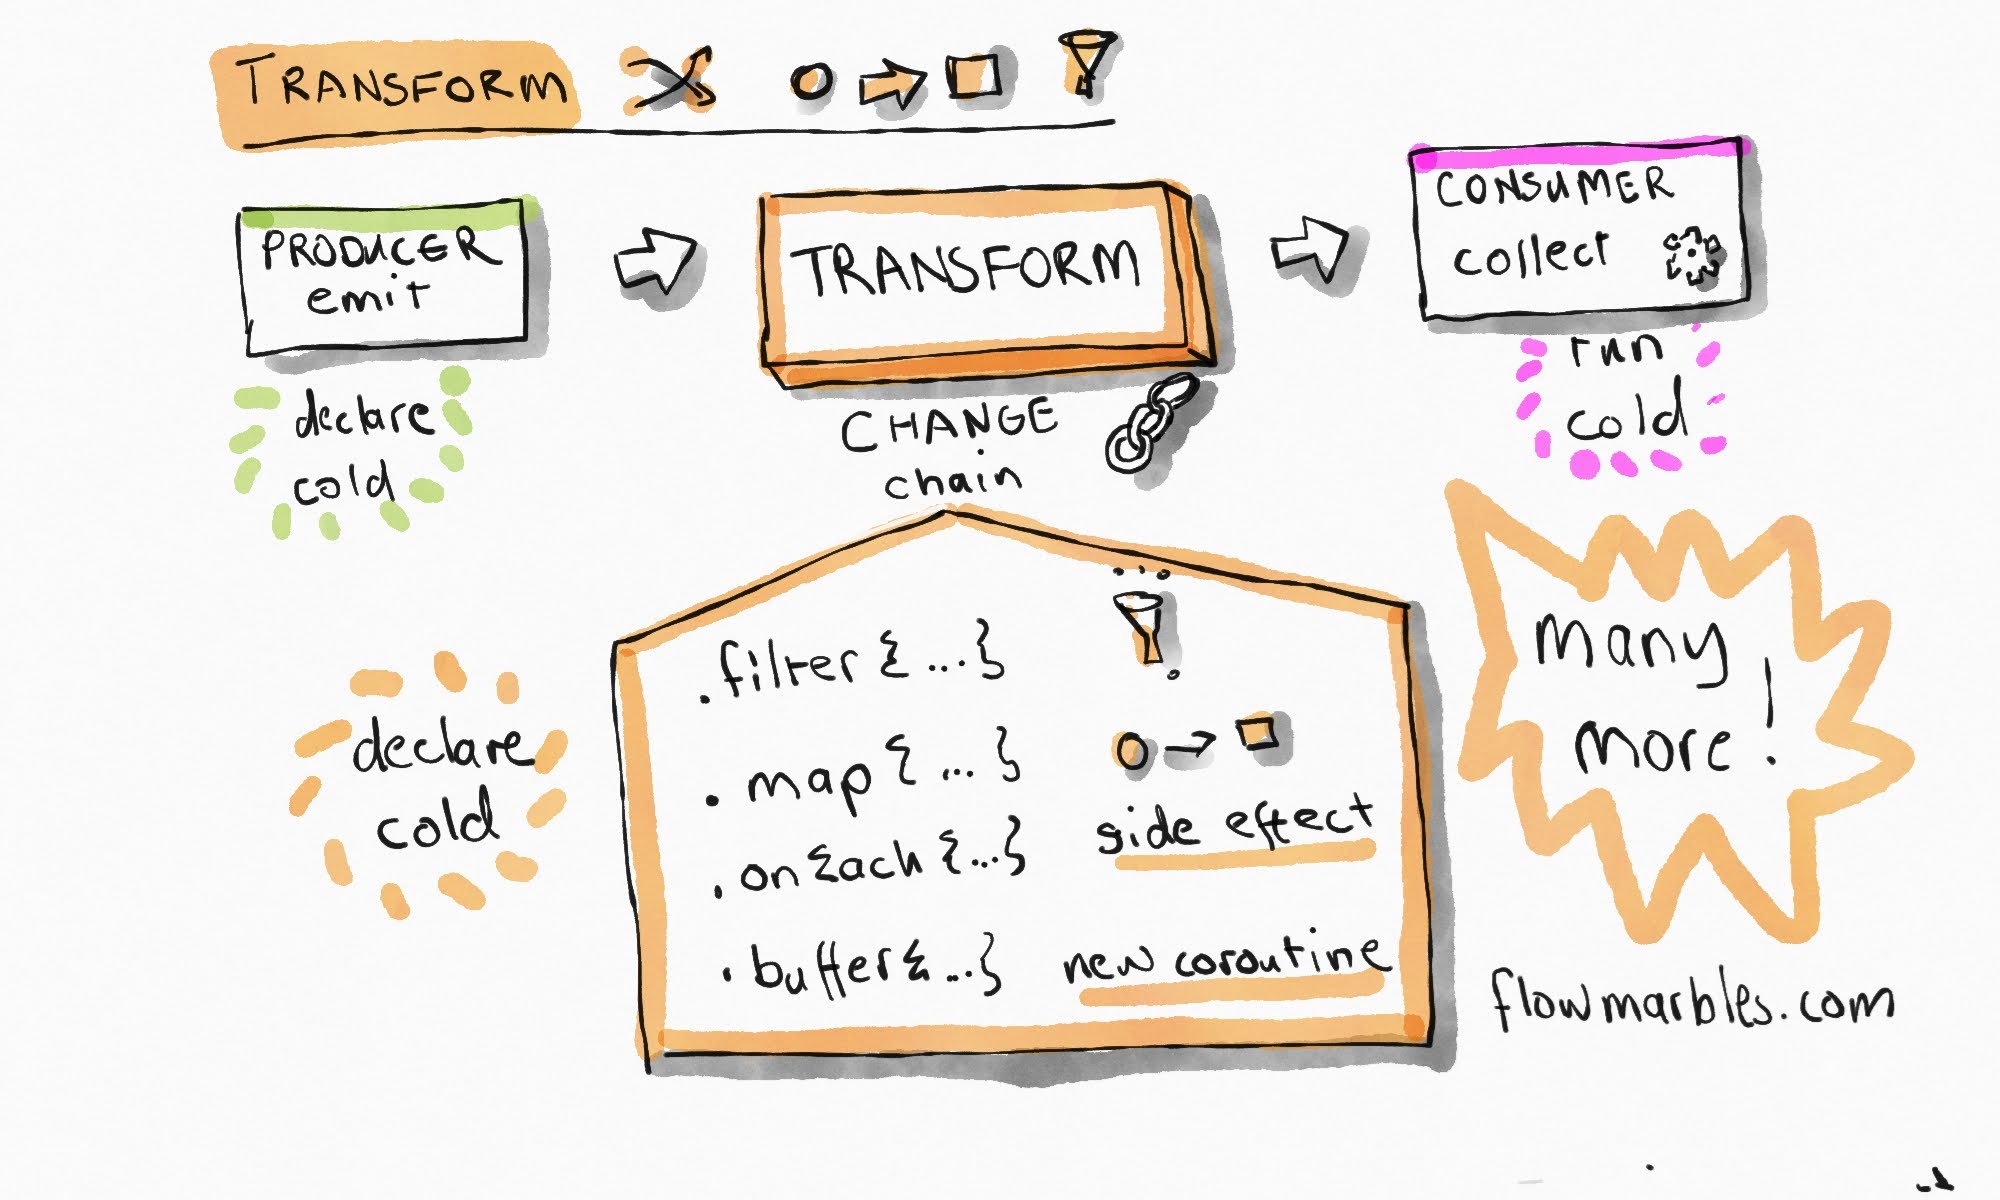 TRANSFORM
PRODUCER
emit
declare
cold
TRANSFORM
CHANGE
chain
CONSUMER
collect
run
cold
declare
cold
.filter {...}
.map {...}
.onEach {...}
.buffer {...}
side effect
new coroutine
many
more!
flowmarbles.com